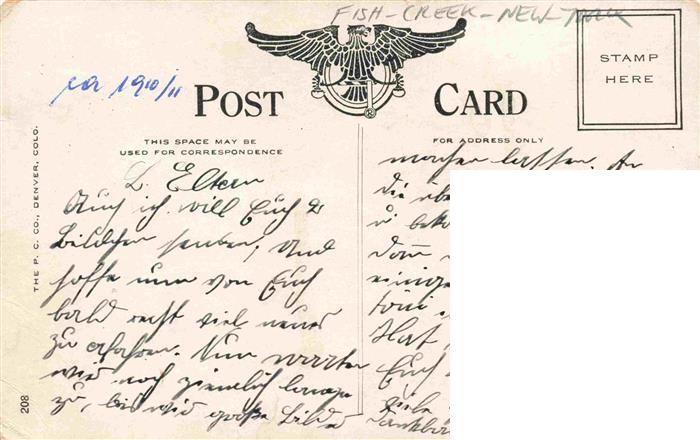 FISH-CREEK-NEW-YORK
ca 1910/11
POST CARD
STAMP
HERE
THIS SPACE MAY BE
USED FOR CORRESPONDENCE
FOR ADDRESS ONLY
THE P. C. CO., DENVER, COLO.
208
L. Eltern
Auch ich will Euch 2
Bildchen senden, und
hoffe nun von Euch
bald recht viel neues
zu erfahren. Nun warten
wir noch ziemlich lange
zu, bis wir große Bilder
machen lassen. An
die
u.
Dann
einige
Hat
Euch
viele